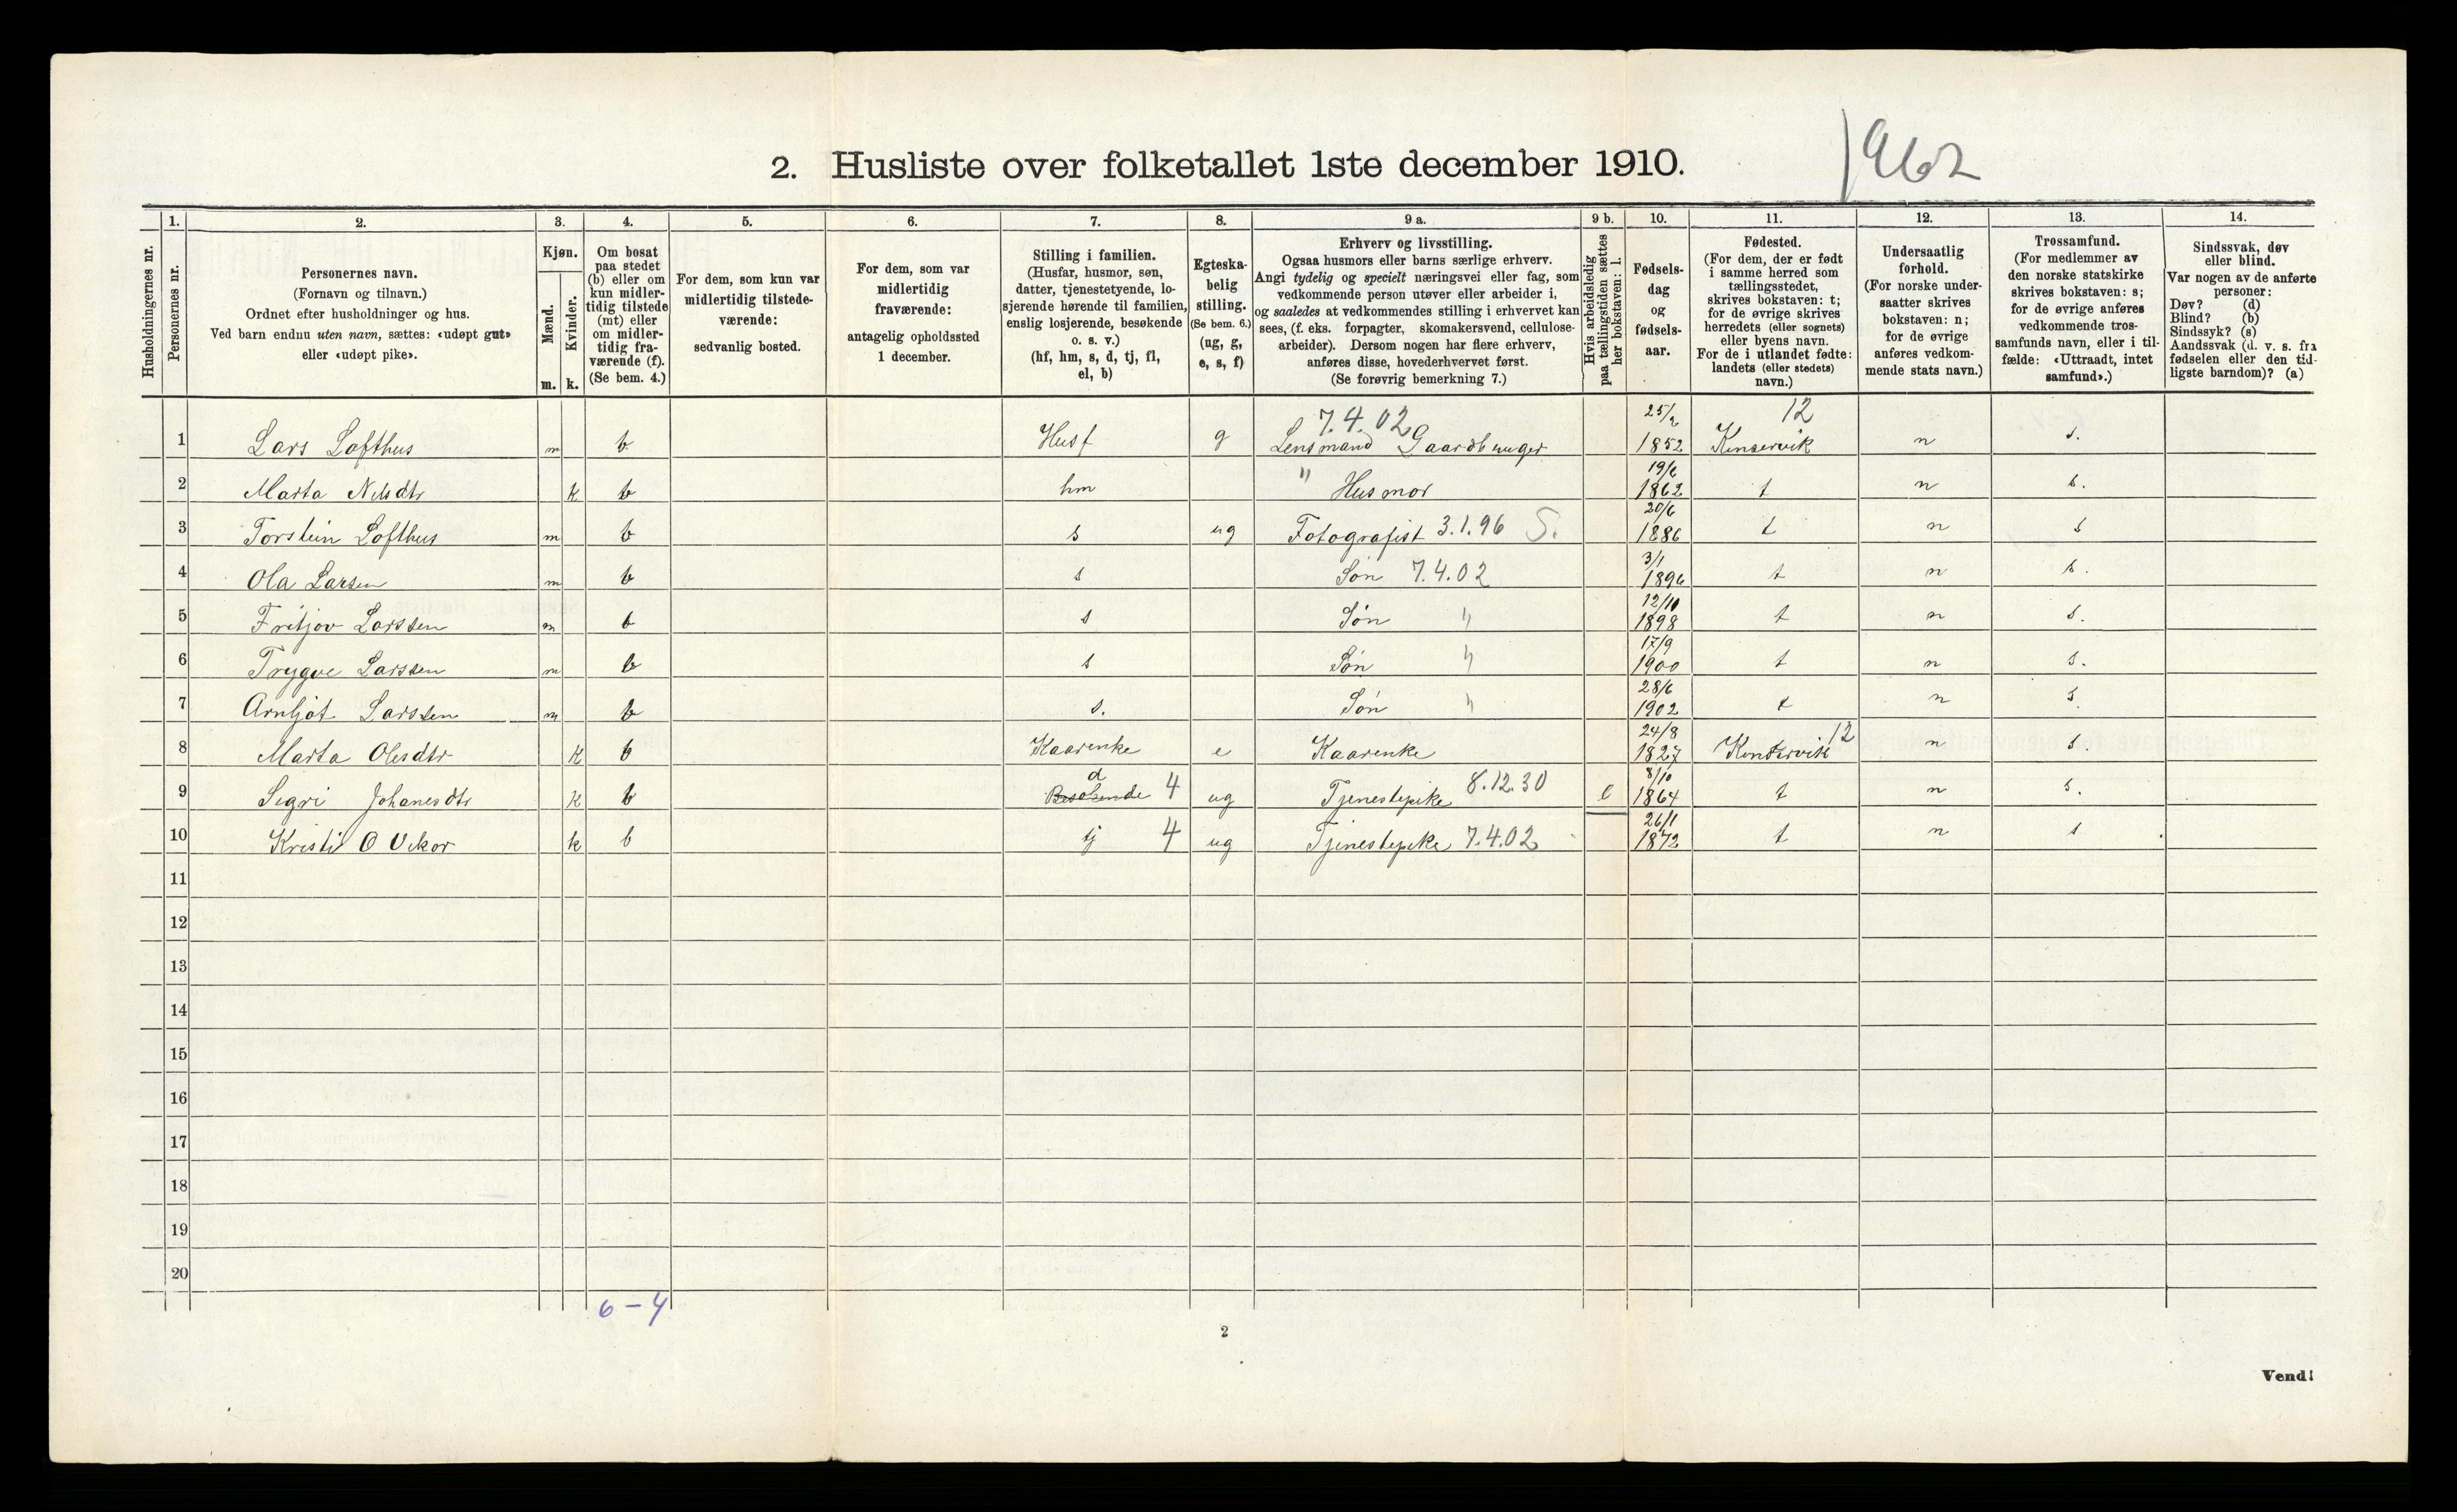 2. Husliste over folketallet 1ste december 1910.
1962
Husholdningernes nr.
1.
Personernes nr.
2.
Personernes navn.
(Fornavn og tilnavn.)
Ordnet efter husholdninger og hus.
Ved barn endnu uten navn, sættes: «udøpt gut»
eller «udøpt pike».
3.
Kjøn.
Mænd.
Kvinder.
m. k.
4.
Om bosat
paa stedet
(b) eller om
kun midler-
tidig tilstede
(mt) eller
om midler-
tidig fra-
værende (f).
(Se bem. 4.)
5.
For dem, som kun var
midlertidig tilstede-
værende:
sedvanlig bosted.
6.
For dem, som var
midlertidig
fraværende:
antagelig opholdssted
1 december.
7.
Stilling i familien.
(Husfar, husmor, søn,
datter, tjenestetyende, lo-
sjerende hørende til familien,
enslig losjerende, besøkende
o. s. v.)
(hf, hm, s, d, tj, fl,
el, b)
8.
Egteska-
belig
stilling.
(Se bem. 6.)
(ug, g,
e, s, f)
9 a.
Erhverv og livsstilling.
Ogsaa husmors eller barns særlige erhverv.
Angi tydelig og specielt næringsvei eller fag, som
vedkommende person utøver eller arbeider i,
og saaledes at vedkommendes stilling i erhvervet kan
sees, (f. eks. forpagter, skomakersvend, cellulose-
arbeider). Dersom nogen har flere erhverv,
anføres disse, hovederhvervet først.
(Se forøvrig bemerkning 7.)
9 b.
Hvis arbeidsledig
paa tællingstiden sættes
her bokstaven: l.
10.
Fødsels-
dag
og
fødsels-
aar.
11.
Fødested.
(For dem, der er født
i samme herred som
tællingsstedet,
skrives bokstaven: t;
for de øvrige skrives
herredets (eller sognets)
eller byens navn.
For de i utlandet fødte:
landets (eller stedets)
navn.)
12.
Undersaatlig
forhold.
(For norske under-
saatter skrives
bokstaven: n;
for de øvrige
anføres vedkom-
mende stats navn.)
13.
Trossamfund.
(For medlemmer av
den norske statskirke
skrives bokstaven: s;
for de øvrige anføres
vedkommende tros-
samfunds navn, eller i til-
fælde: «Uttraadt, intet
samfund».)
14.
Sindssvak, døv
eller blind.
Var nogen av de anførte
personer:
Døv? (d)
Blind? (b)
Sindssyk? (s)
Aandssvak (d. v. s. fra
fødselen eller den tid-
ligste barndom)? (a)
7.4.02 25/2 12
1 Lars Lofthus m b Husf g Lensmand Gaardbruger 1852 Kinservik n s.
19/6
2 Marta Nilsdtr k b hm " Husmor 1862 t n s.
20/6
3 Torstein Lofthus m b s ug Fotografist 3.1.96 S. 1886 t n s
3/1
4 Ola Larsen m b s Søn 7.4.02 1896 t n s.
12/10
5 Fritjov Larssen m b s Søn " 1898 t n s.
17/9
6 Trygve Larssen m b s Søn " 1900 t n s.
28/6
7 Arnljot Larssen m b s. Søn " 1902 t n s.
24/8 12
8 Marta Olesdtr k b Kaarenke e Kaarenke 1827 Kinservik n s.
d 8/10
9 Segri Johanesdtr k b Besøkende 4 ug Tjenestepike 8.12.30 l 1864 t n s.
26/1
10 Kristi O Vikor k b tj 4 ug Tjenestepike 7.4.02 1872 t n s
11
12
13
14
15
16
17
18
19
20
6 - 4
2
Vend!